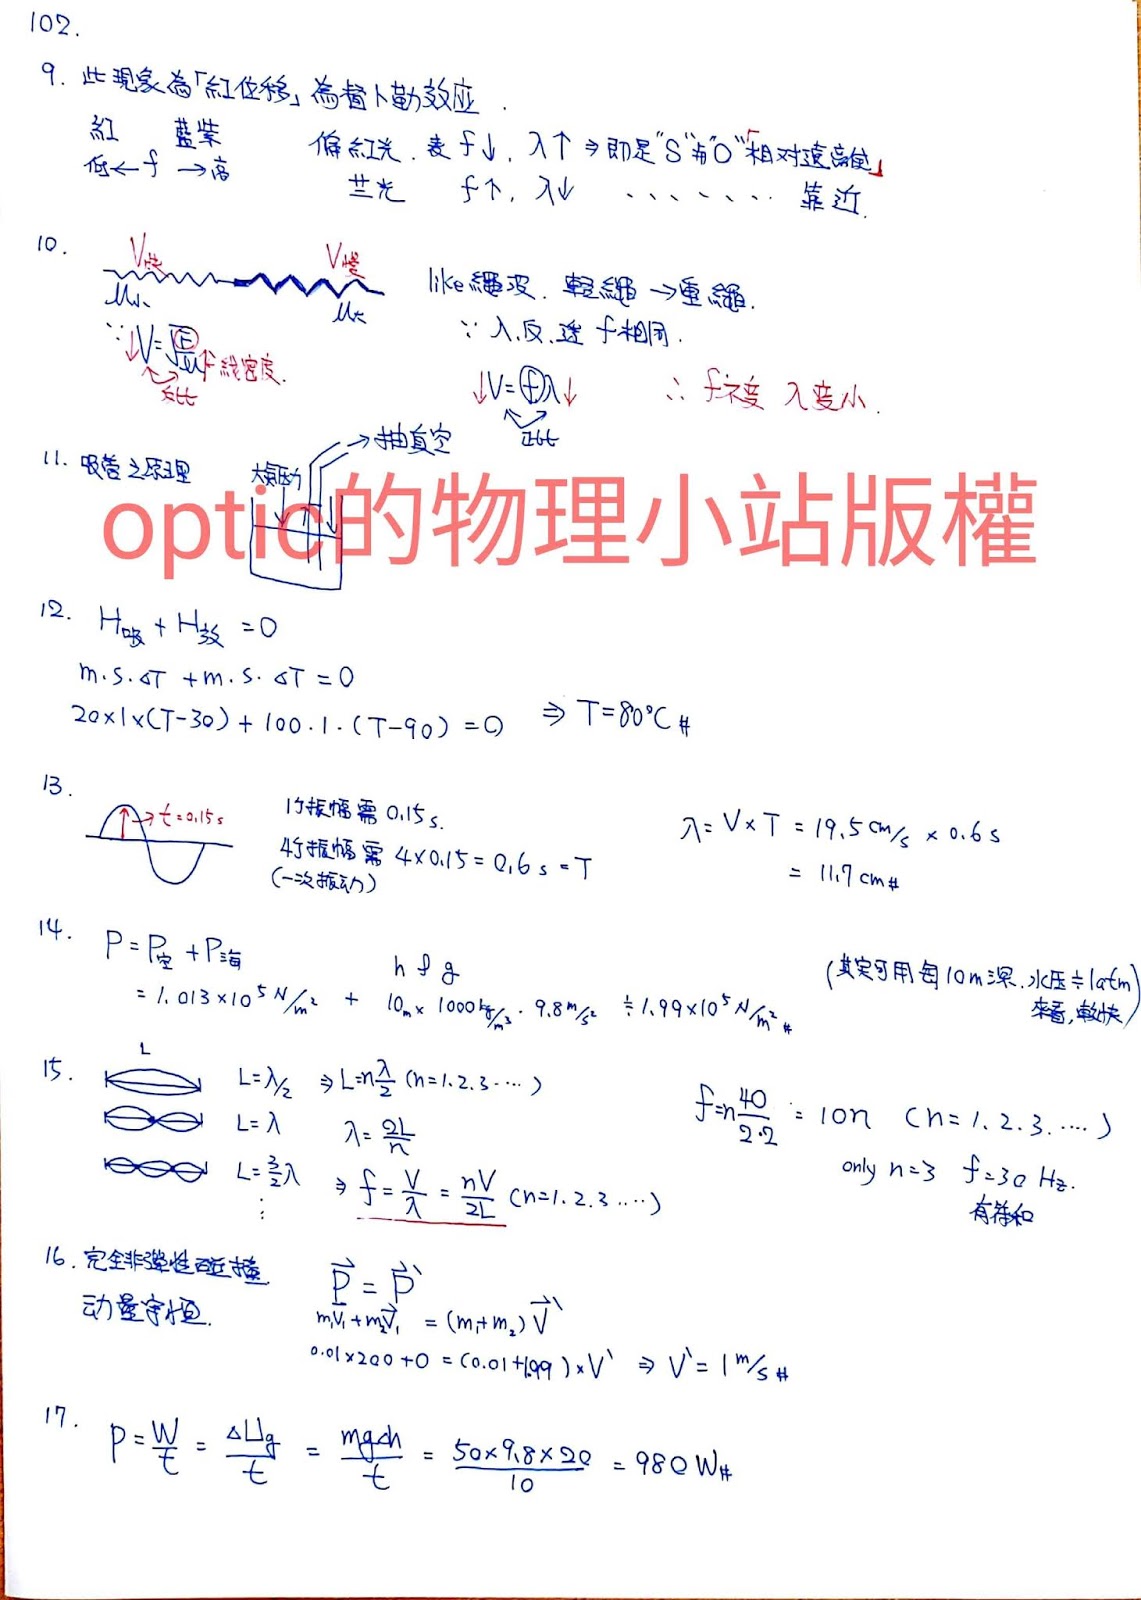 102.
9. 此現象為「紅位移」為督卜勒效应.
紅 藍紫
低←f→高
偏紅光. 表 f↓, λ↑ ⇒ 即是"S"與"O"「相对遠離」
兰光 f↑, λ↓ ........ 靠近.
10.
V快 V慢
μ小 μ大
∵ ↓V=√(F/μ)↑ 線密度.
反比
like 繩波. 輕繩→重繩.
∵ 入.反.透 f相同.
↓V=fλ↓
正比
∴ f不变 λ变小.
11. 吸管之原理
大氣压力
→抽真空
optic的物理小站版權
12. H吸 + H放 = 0
m.s.ΔT + m.s.ΔT = 0
20×1×(T-30) + 100.1.(T-90) = 0 ⇒ T=80°C #
13.
→ t=0.15s
1个振幅需 0.15s.
4个振幅需 4×0.15=0.6s=T
(一次振动)
λ= V×T = 19.5 cm/s × 0.6s
= 11.7 cm #
14. P=P空 + P海
h ρ g
= 1.013×10⁵ N/m² + 10m × 1000 kg/m³ · 9.8 m/s² ≑ 1.99×10⁵ N/m² #
(其实可用每10m深.水压≑1atm
來看,較快)
15.
L
L=λ/2 ⇒ L=nλ/2 (n=1.2.3....)
L=λ
λ=2L/n
L=3/2λ
⇒ f=V/λ = nV/2L (n=1.2.3....)
f=n 40/2·2 = 10n (n=1.2.3....)
only n=3 f=30 Hz.
有符和
16. 完全非彈性碰撞
动量守恆.
P = P`
m₁V₁+m₂V₁ = (m₁+m₂)V`
0.01×200+0 = (0.01+1.99)×V` ⇒ V`= 1 m/s #
17. P=W/t = ΔUg/t = mgΔh/t = 50×9.8×20/10 = 980 W #